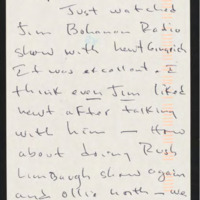 Just watched
Jim Bohannon Radio
show with Newt Gingrich
It was excellent. I
think even Jim liked
Newt after talking
with him — How
about doing Rush
Limbaugh show again
and Ollie North — we